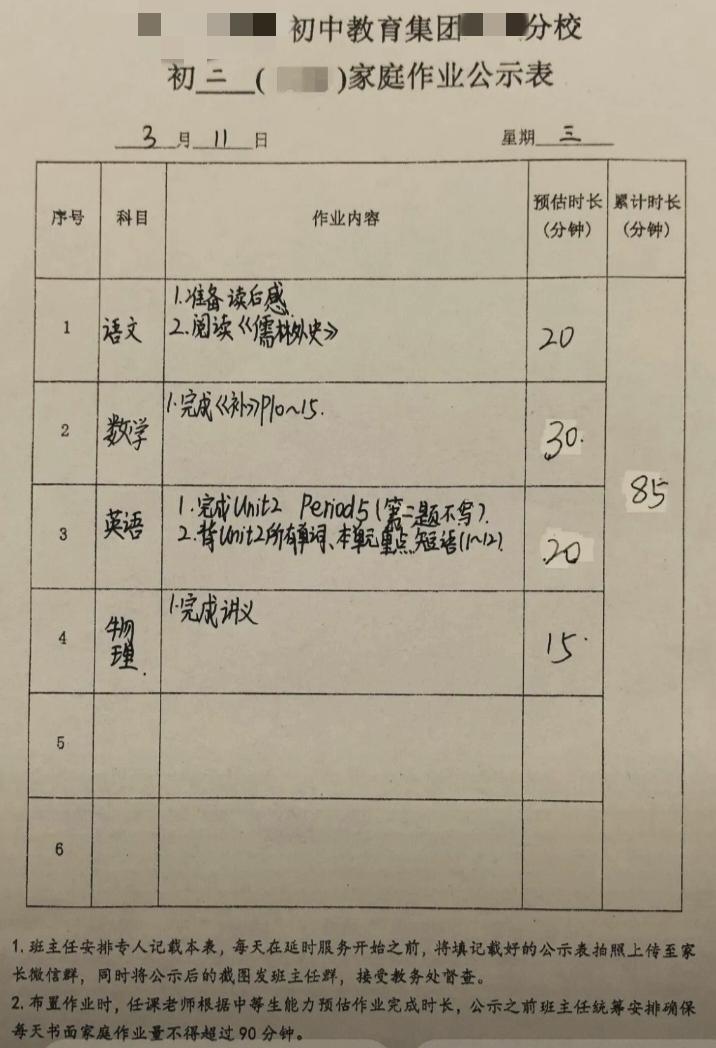 初中教育集团 分校
初二( )家庭作业公示表
3月11日 星期三
序号 科目 作业内容 预估时长(分钟) 累计时长(分钟)
1 语文 1.准备读后感
2.阅读《儒林外史》 20
2 数学 1.完成《补》P10~15. 30.
85
3 英语 1.完成Unit2 Period5(第二题不写).
2.背Unit2所有单词、本单元重点短语(1~12). 20
4 物理. 1.完成讲义 15.
5
6
1.班主任安排专人记载本表，每天在延时服务开始之前，将填记载好的公示表拍照上传至家
长微信群，同时将公示后的截图发班主任群，接受教务处督查。
2.布置作业时，任课老师根据中等生能力预估作业完成时长，公示之前班主任统筹安排确保
每天书面家庭作业量不得超过90分钟。